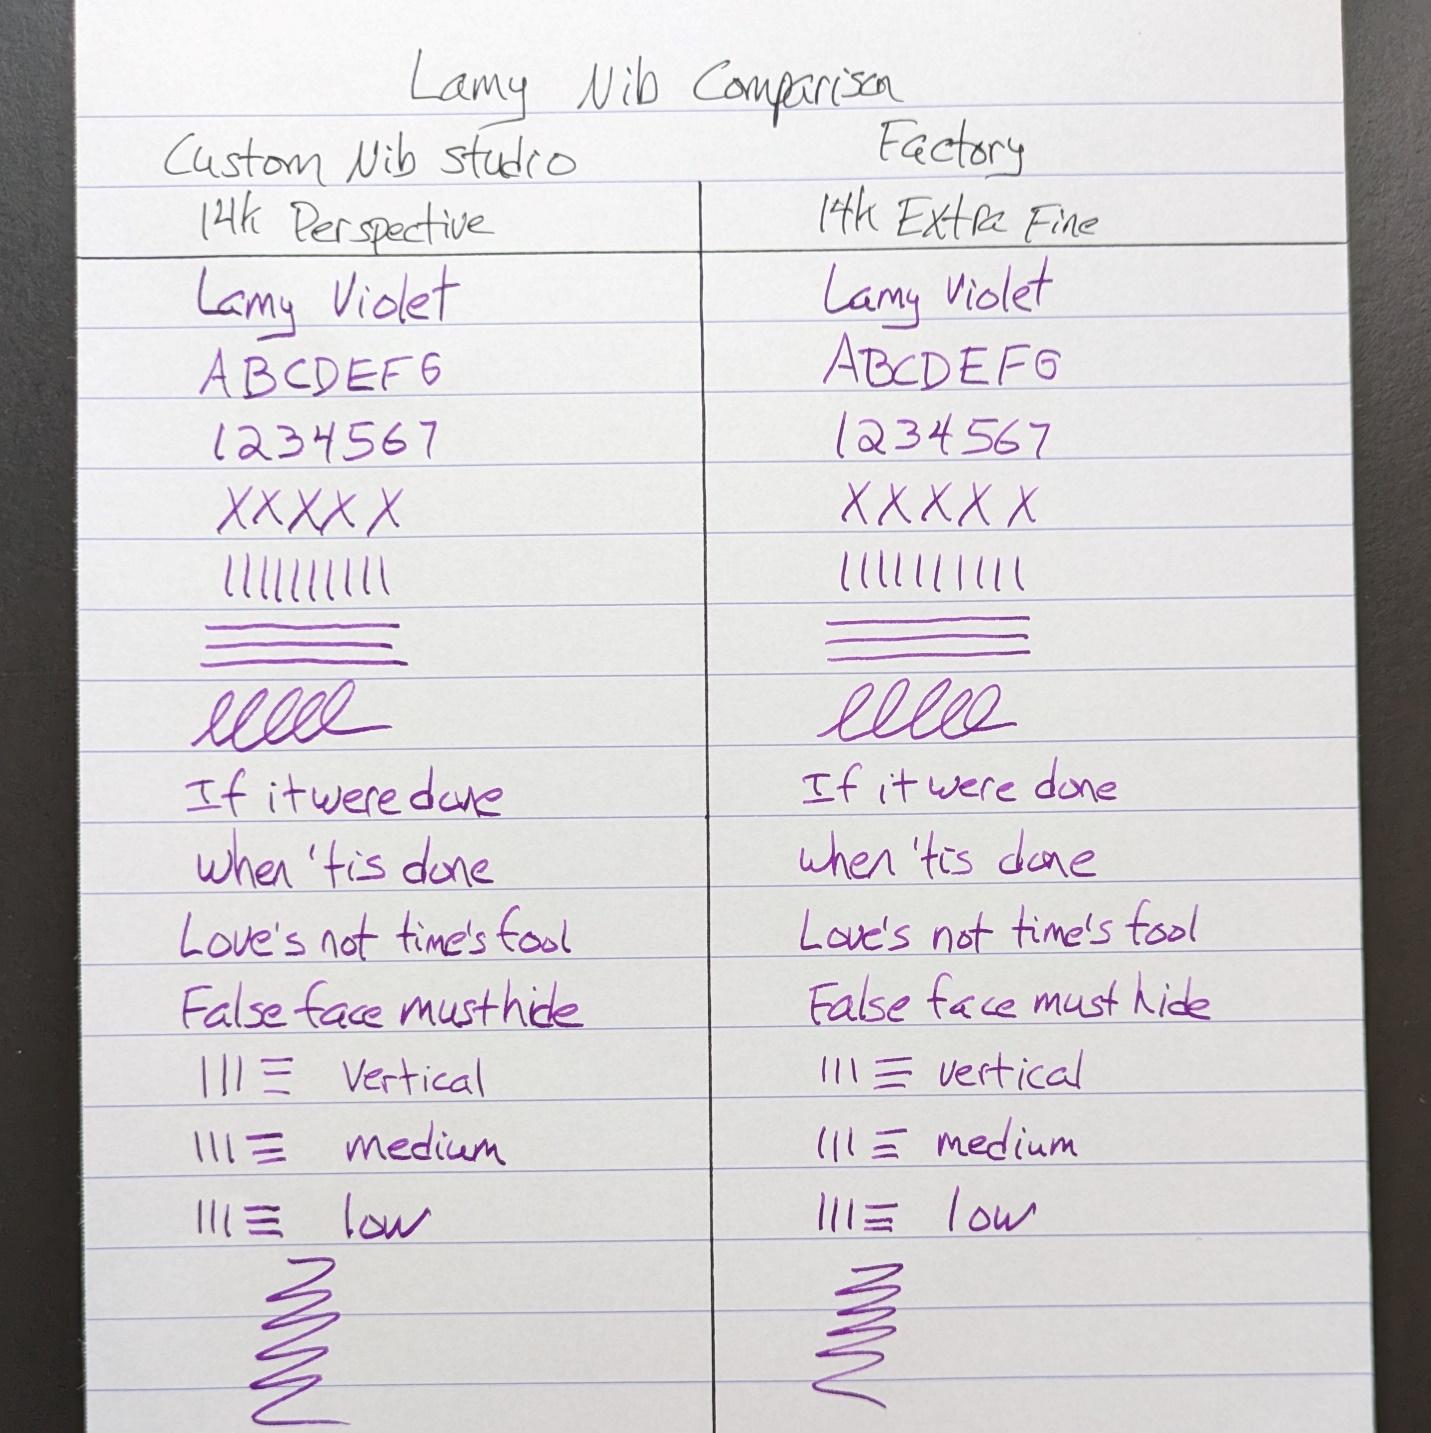 Lamy Nib Comparison
Custom Nib Studio
14k Perspective
Lamy Violet
ABCDEFG
1234567
XXXXX
If it were done
when 'tis done
Love's not time's fool
False face must hide
Vertical
medium
low
Factory
14k Extra Fine
Lamy Violet
ABCDEFG
1234567
XXXXX
If it were done
when 'tis done
Love's not time's fool
False face must hide
vertical
medium
low